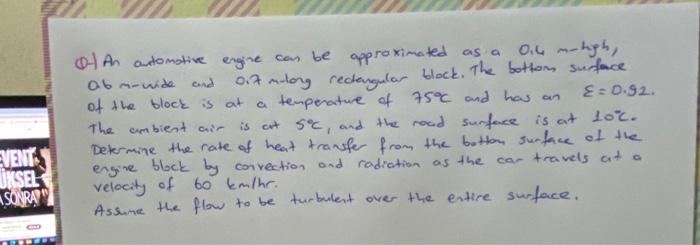 Q-) An automotive engine can be approximated as a 0.4 m-high,
0.6 m-wide and 0.7 m-long rectangular block. The bottom surface
of the block is at a temperature of 75°C and has an ε=0.92.
The ambient air is at 5°C, and the road surface is at 10°C.
Determine the rate of heat transfer from the bottom surface of the
engine block by convection and radiation as the car travels at a
velocity of 60 km/hr.
Assume the flow to be turbulent over the entire surface.
EVENT
ÜKSEL
SONRA